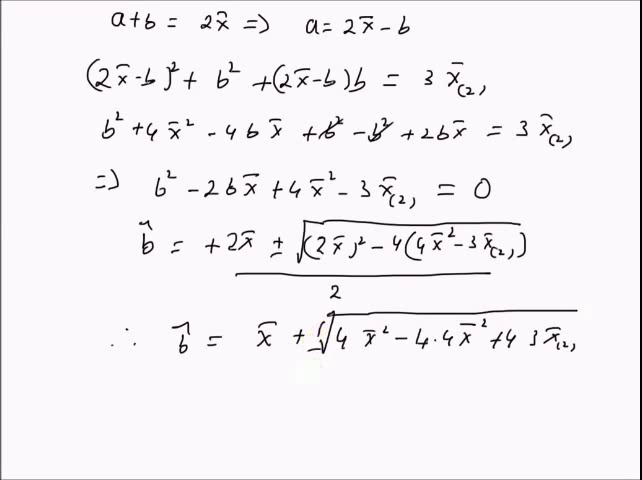 a+b = 2x̄ => a = 2x̄ - b
(2x̄-b)² + b² + (2x̄-b)b = 3 x̄(2,
b² + 4x̄² - 4bx̄ + b² - b² + 2bx̄ = 3 x̄(2,
=) b² - 2bx̄ + 4x̄² - 3x̄(2, = 0
b̂ = +2x̄ ± √(2x̄)² - 4(4x̄² - 3x̄(2,)
2
∴ b̂ = x̄ ± √4 x̄² - 4·4x̄² + 4 3x̄(2,